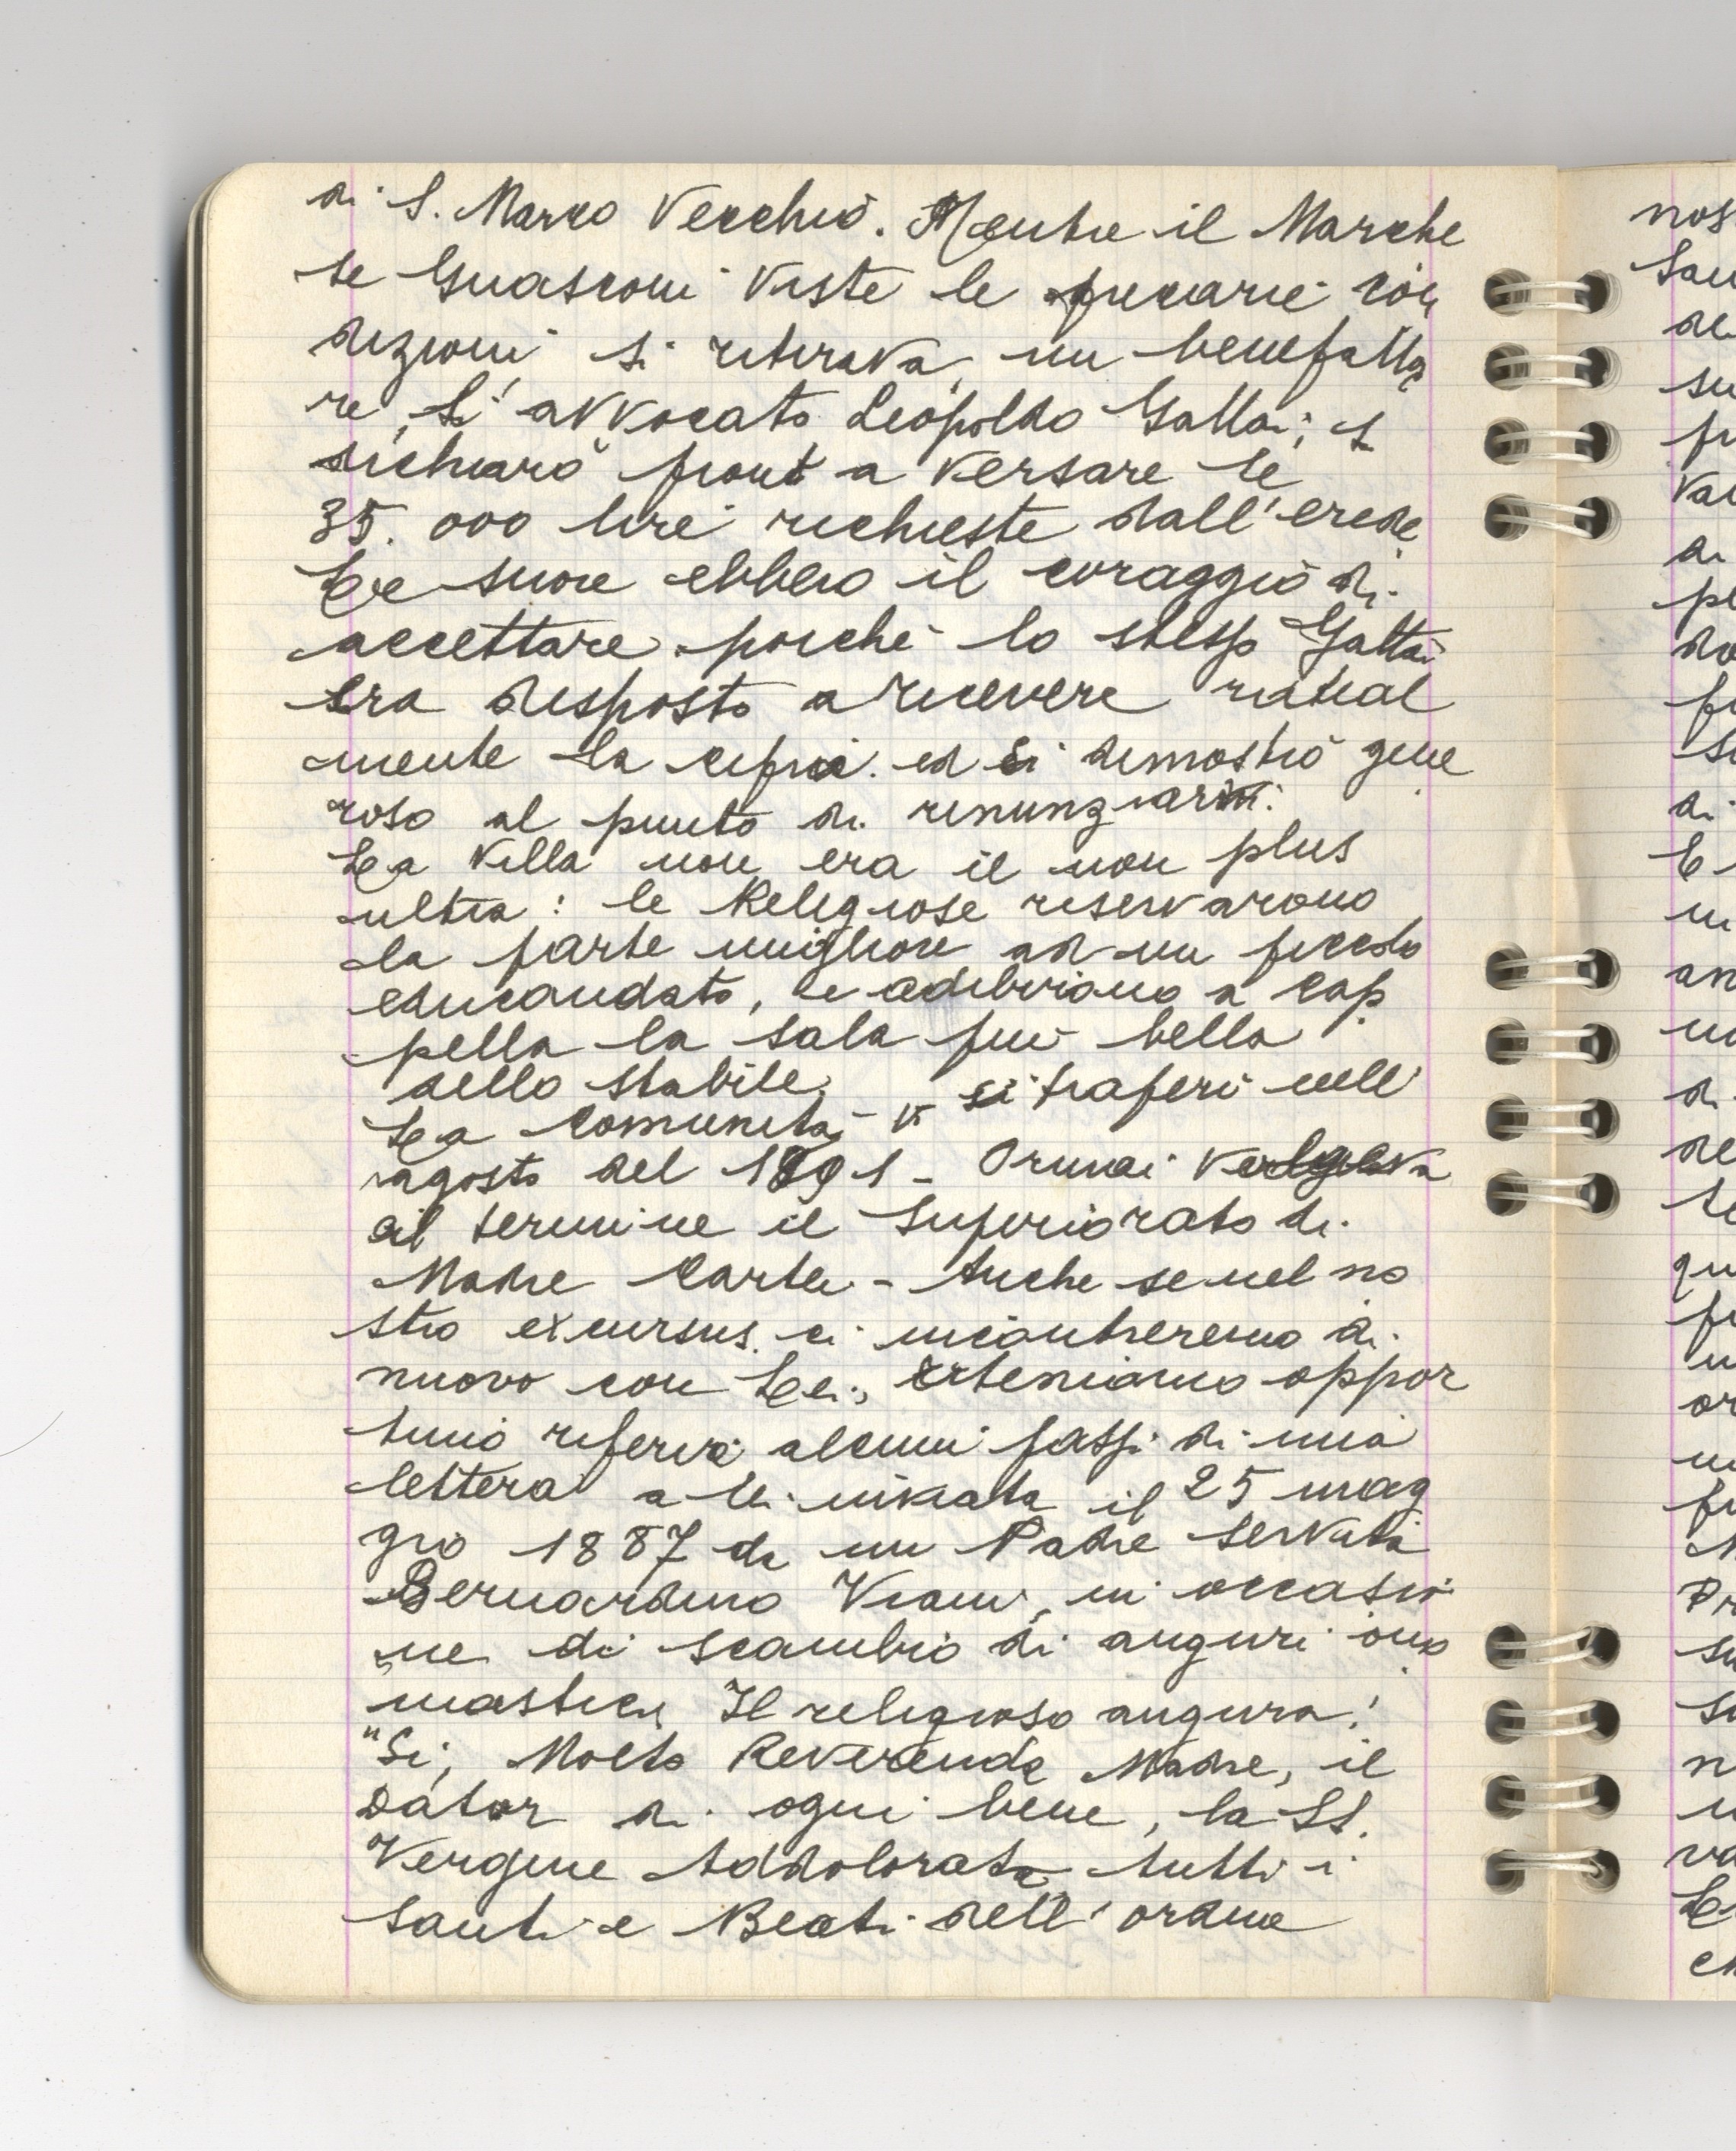 di S. Marco Vecchio. Mentre il Marche
se Guasconi viste le precarie con
dizioni si ritirava, un benefatto
re, l'avvocato Leopoldo Gattai, si
dichiarò pront a versare le
35.000 lire richieste dall'erede
Le suore ebbero il coraggio di
accettare poiché lo stesso Gattai
era disposto a ricevere rateal
mente la cifra. ed si dimostrò gene
roso al punto di rinunziarvi.
La villa non era il non plus
ultra: le Religiose riservarono
la parte migliore ad un piccolo
educandato, e adibirono a cap
pella la sala più bella
dello stabile.
La comunità vi si trasferì nell'
agosto del 1891 - Ormai volgeva
al termine il Superiorato di
Madre - Anche se nel no
stro excursus ci incontreremo di
nuovo con Lei, riteniamo oppor
tuno riferire alcuni passi di una
lettera a lei inviata il 25 mag
gio 1887 da un Padre Servita
Bernardino in occasio
ne di scambio di auguri ono
mastici. Il religioso augura:
"Si, Molto Reverenda Madre, il
Dator di ogni bene, la SS.
Vergine Addolorata tutti i
Santi e Beati dell'ordine
nos
di
an
qu